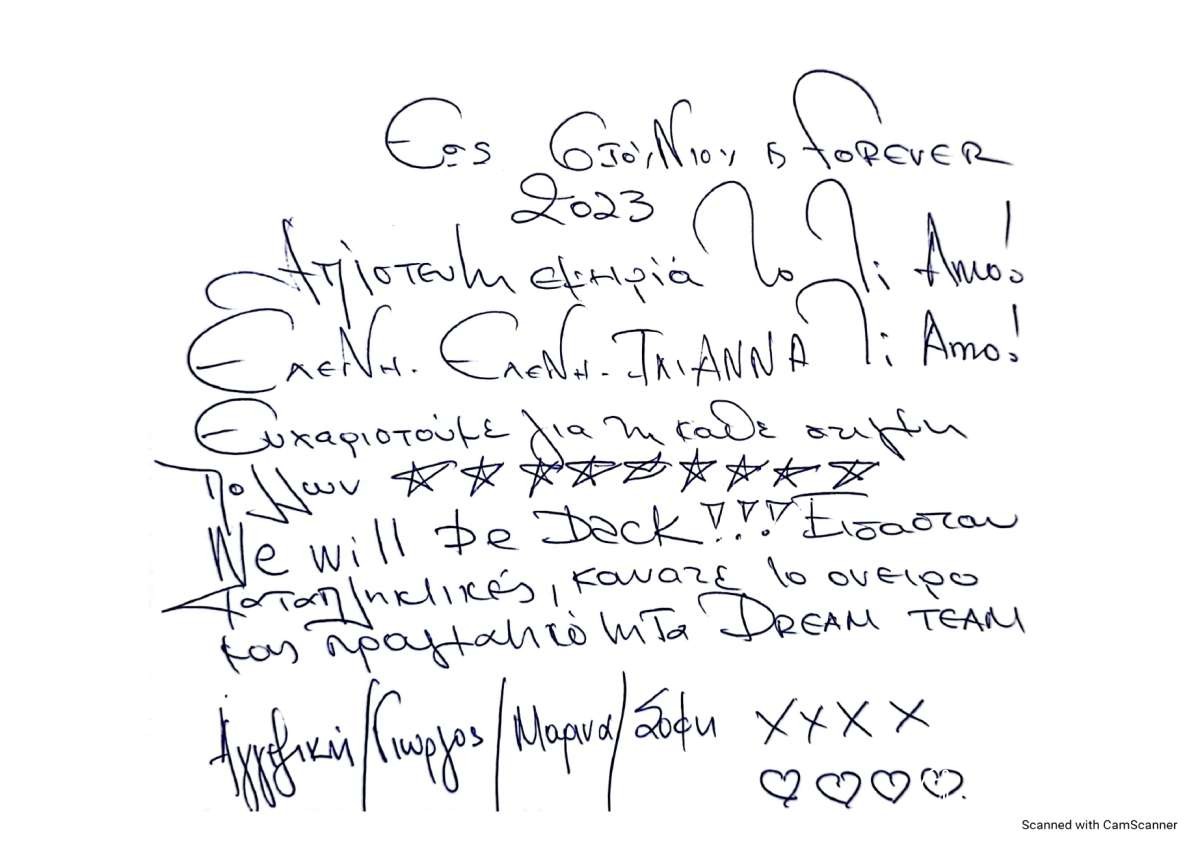 Εως Forever
2023
Απίστευτη εμπειρία το Τι Amo!
Ελενη. Ελενη. Ιλιαννα Τι Amo!
Ευχαριστούμε για τη καθε στιγμη
Πολλων
We will be Back!!! Εισασταν
καταπληκτικές, κανατε το ονειρο
μας πραγματικότητα Dream Team
Αγγελική/Γιωργος/Μαρινα/Σοφη XXXX
Scanned with CamScanner